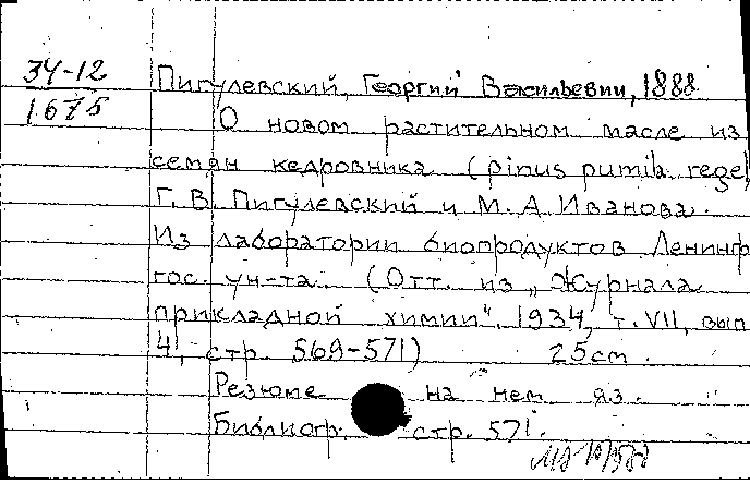 34-12
1675
Пигулевский, Георгий Васильевич, 1888
О новом растительном масле из
семян кедровника (pinus pumila regel
Г. В. Пигулевский и М. А. Иванова.
Из лаборатории биопродуктов Ленингр
гос. ун-та. (Отт. из „Журнала
прикладной химии", 1934, т. VII, вып
4, стр. 569-571) 25 cm.
Резюме на нем. яз.
Библиогр. стр. 571.